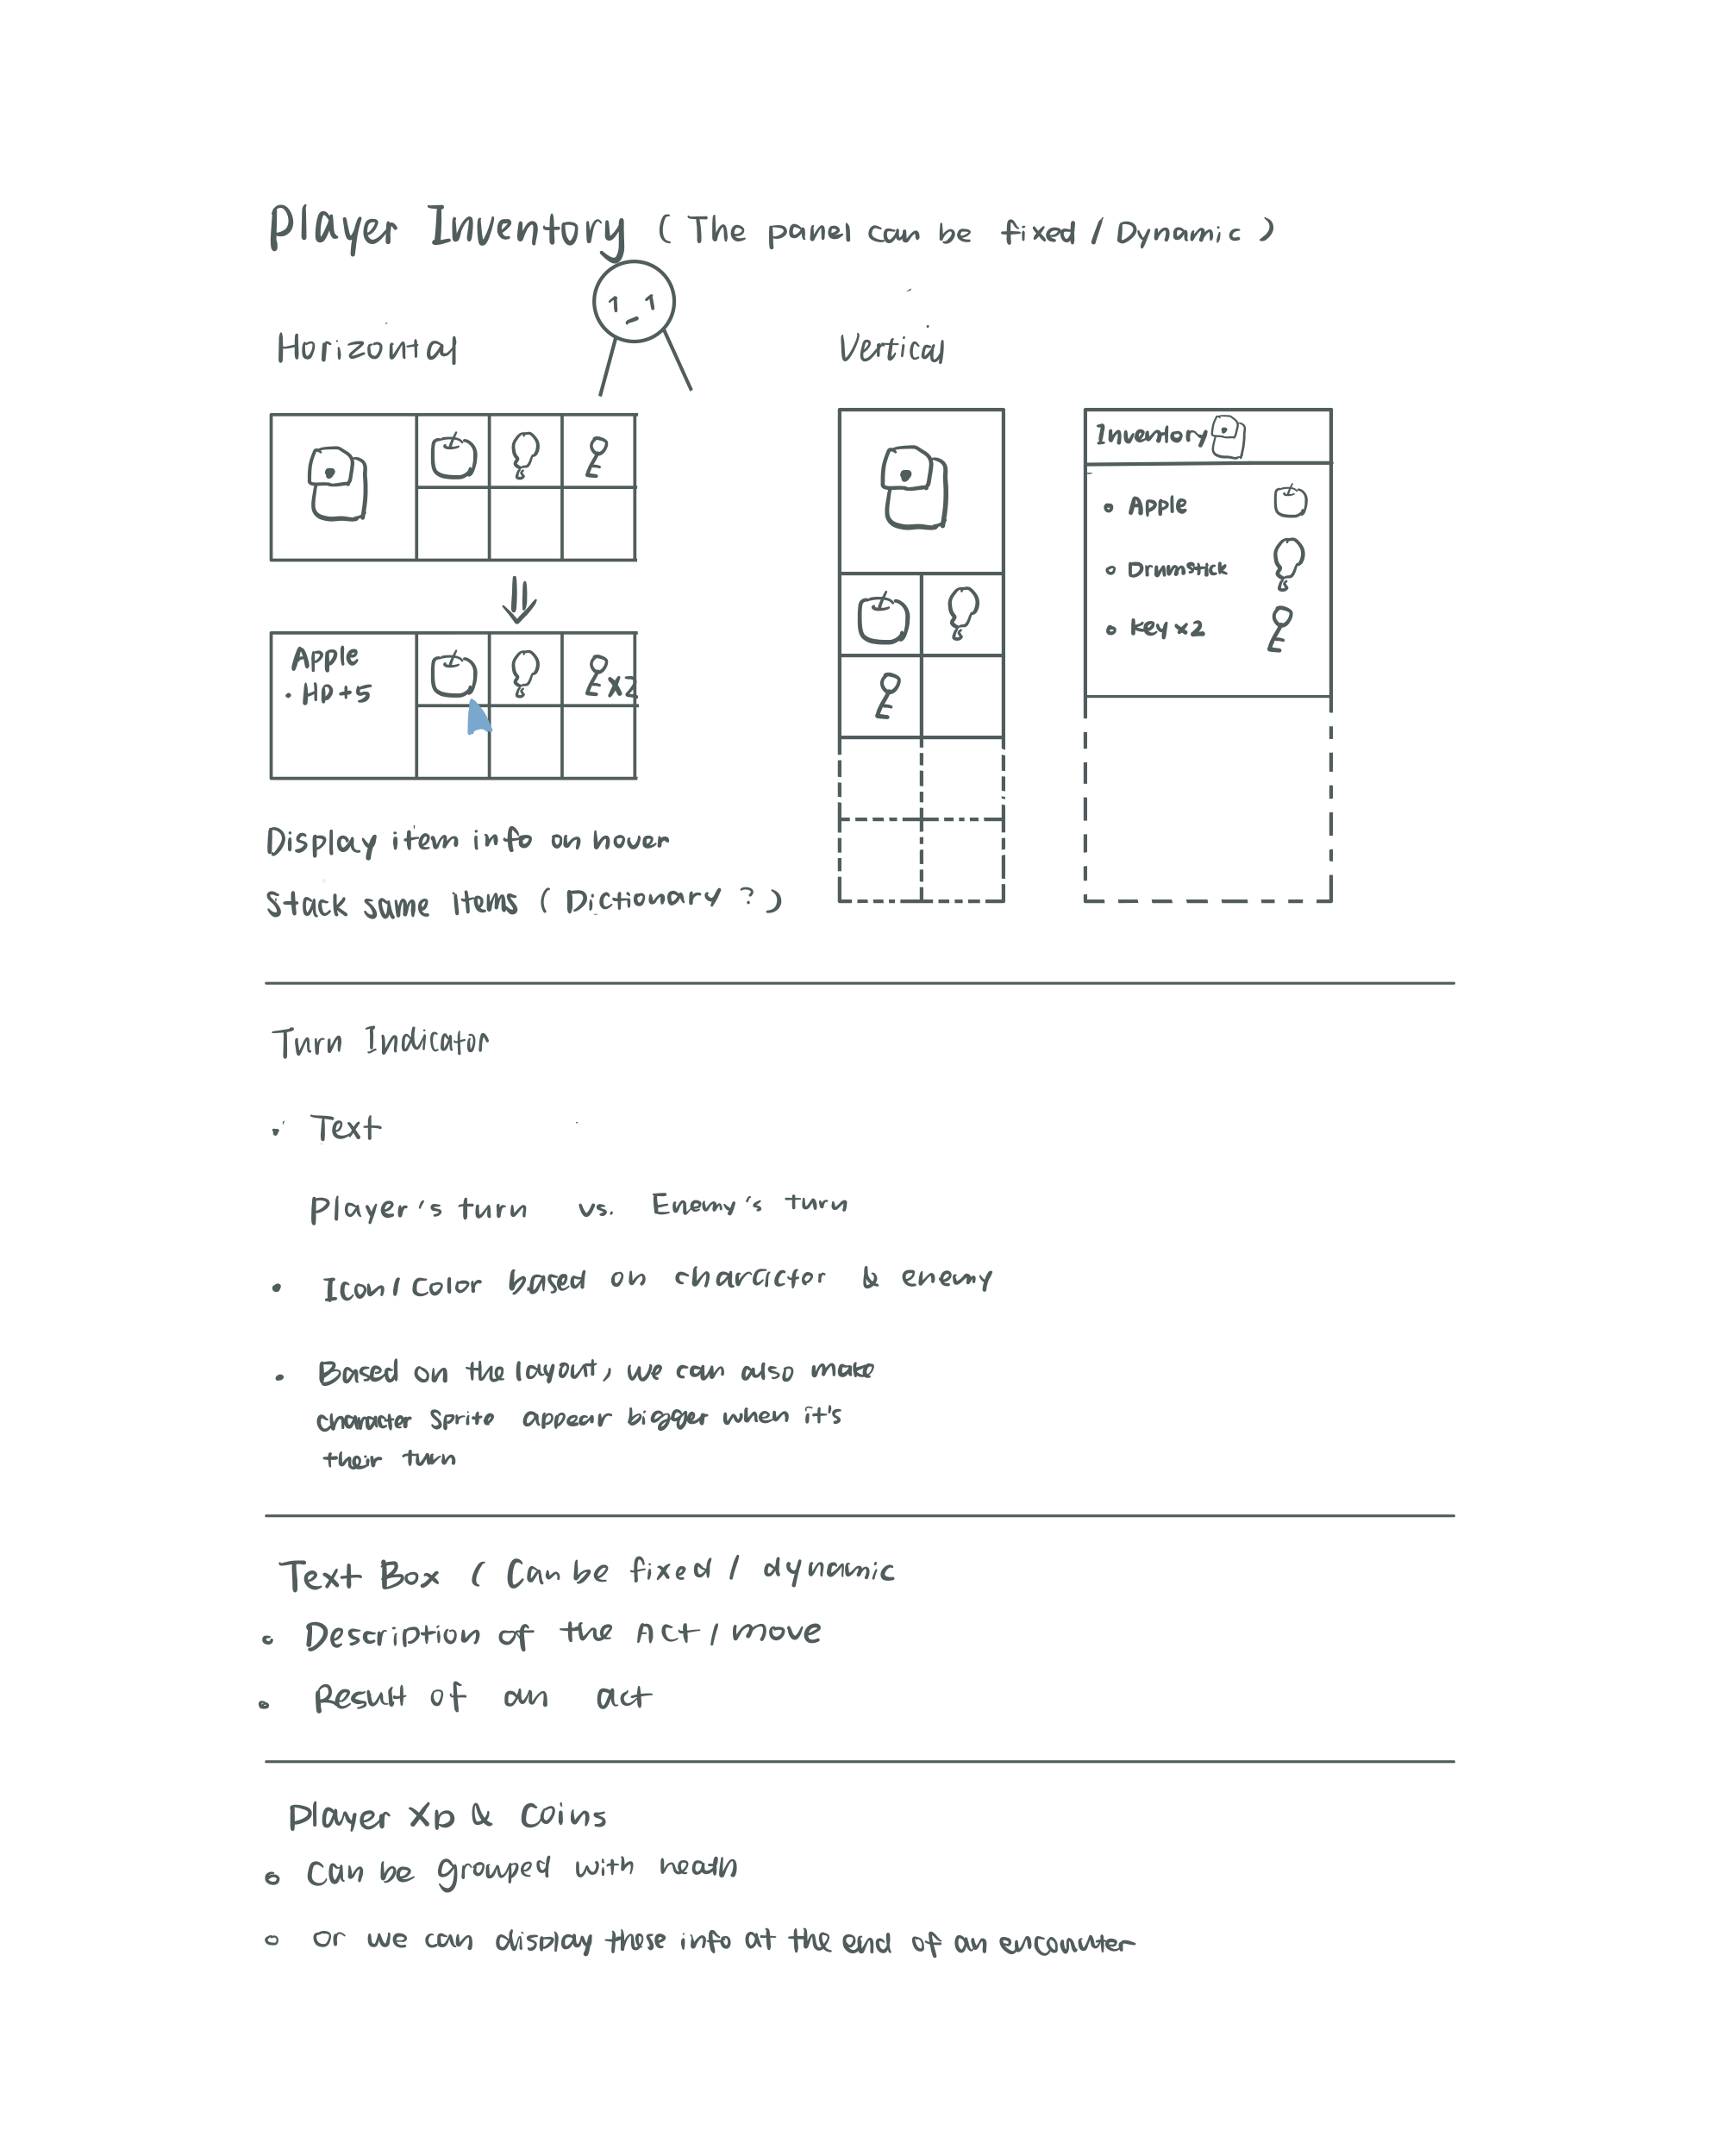 Player Inventory ( The panel can be fixed / Dynamic )
Horizontal
Vertical
Apple
• HP+5
x2
Display item info on hover
Stack same items ( Dictionary ? )
Inventory
• Apple
• Drumstick
• Key x2
Turn Indicator
• Text
Player's turn vs. Enemy's turn
• Icon / Color based on character & enemy
• Based on the layout, we can also make
character sprite appear bigger when it's
their turn
Text Box ( Can be fixed / dynamic
• Description of the Act / move
• Result of an act
Player Xp & Coins
• Can be grouped with heath
• Or we can display these info at the end of an encounter